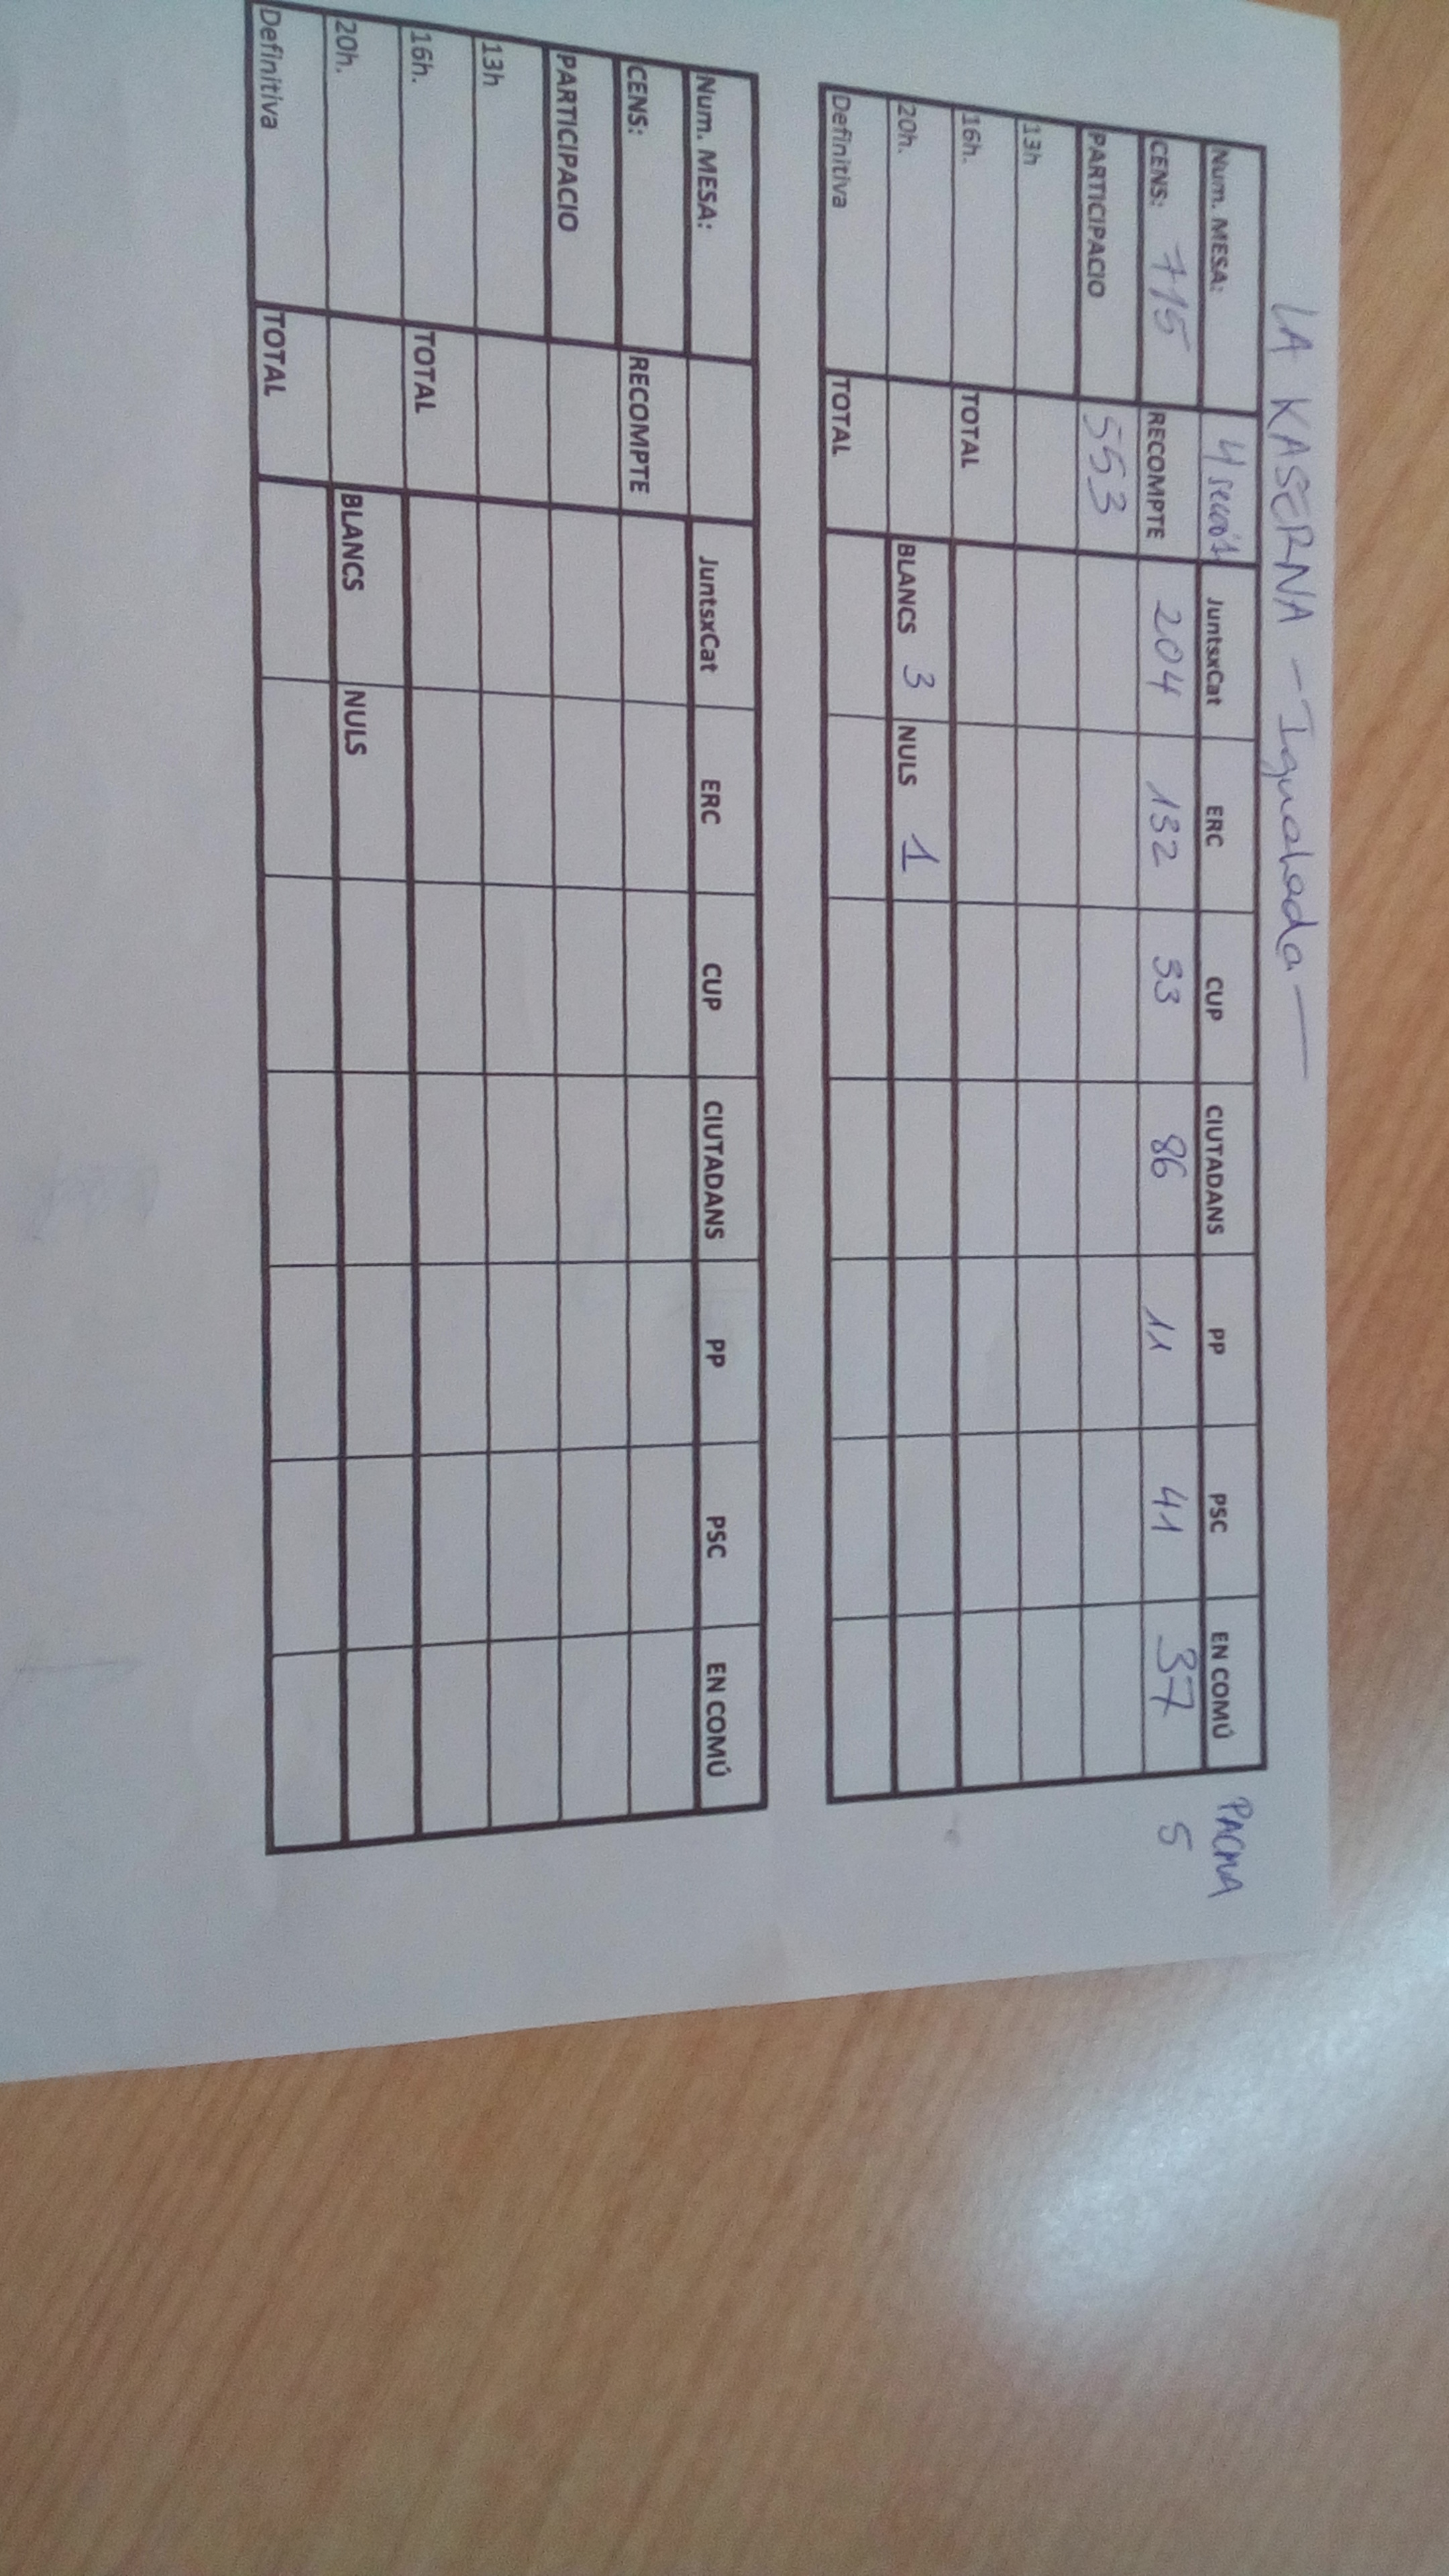 LA KASERNA - Igualada -
Num. MESA: 4 JuntsxCat ERC CUP CIUTADANS PP PSC EN COMÚ PACMA
CENS: 715 RECOMPTE 204 132 33 86 11 41 37 5
PARTICIPACIO 553
13h
16h. TOTAL
20h. BLANCS 3 NULS 1
Definitiva TOTAL
Num. MESA: JuntsxCat ERC CUP CIUTADANS PP PSC EN COMÚ
CENS: RECOMPTE
PARTICIPACIO
13h
16h. TOTAL
20h. BLANCS NULS
Definitiva TOTAL